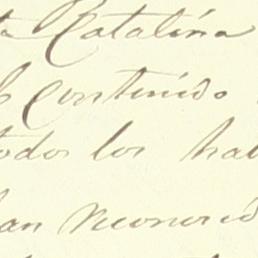 Catalina
Contenido
todos los hab
han reconocid